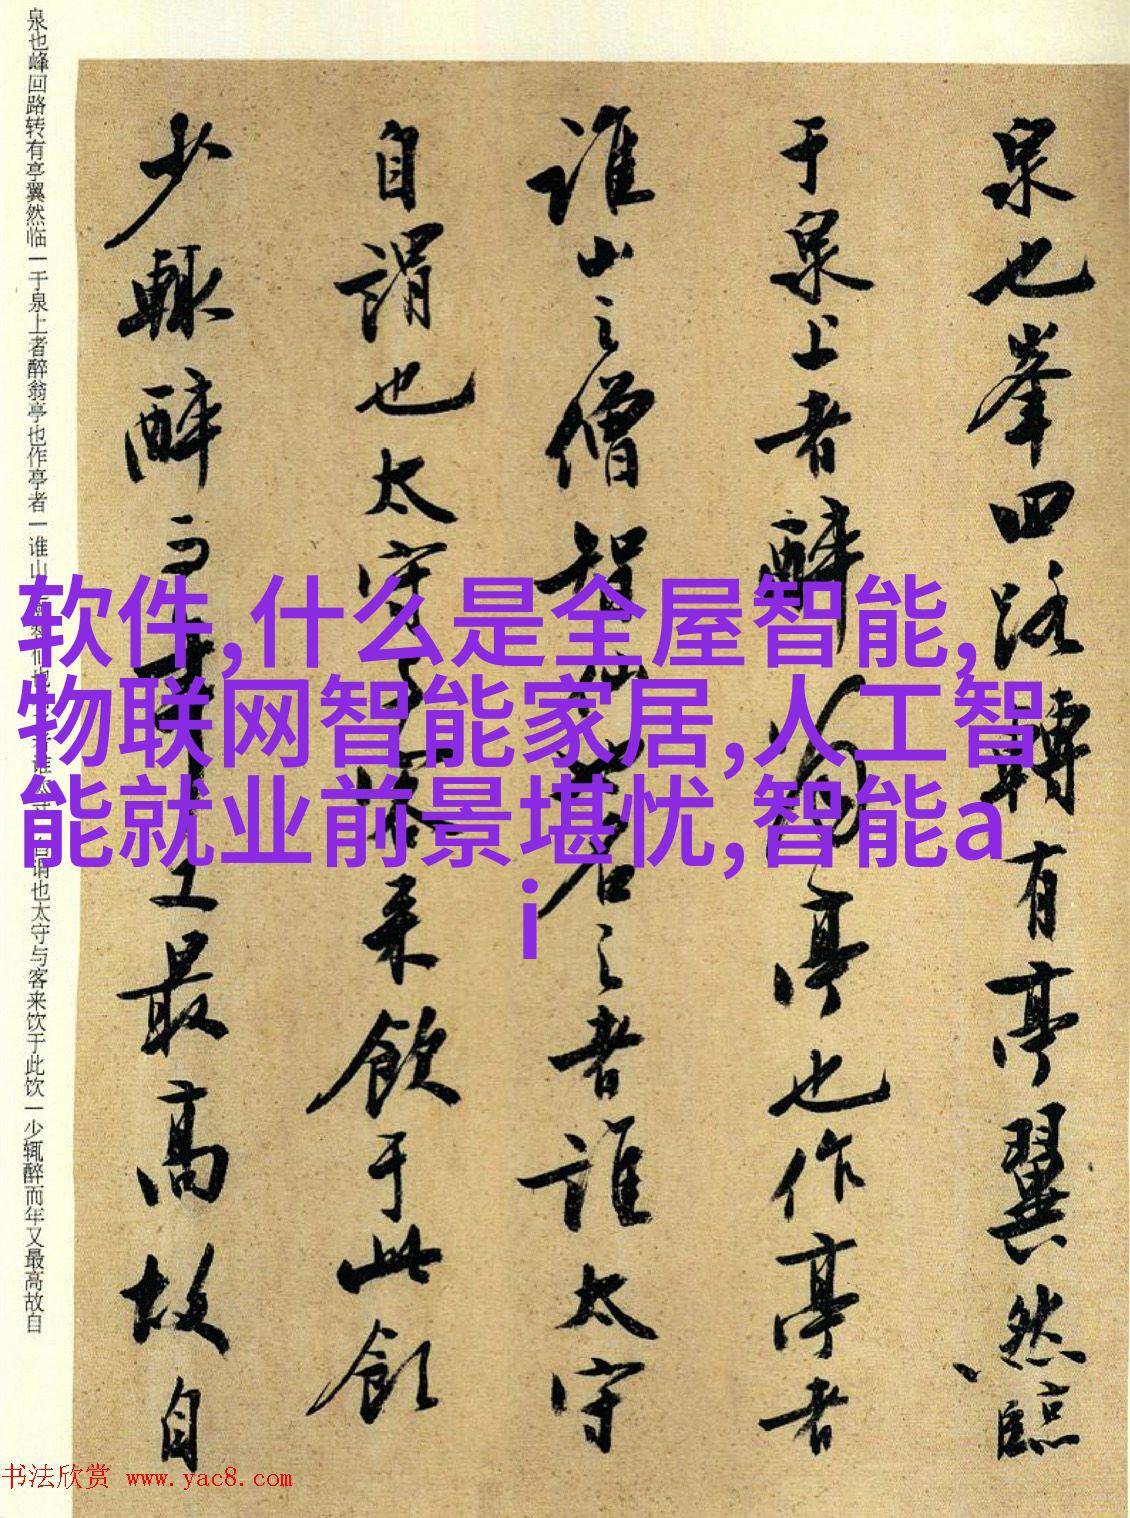 泉也峯回路轉有亭翼然臨
于泉上者醉翁亭也作亭者
誰山之僧智仙也名之者誰太守
自謂也太守与客来飲于此飲
少輒醉而年又最高故自
泉也峰回路转有亭翼然临一于泉上者醉翁亭也作亭者一谁山之僧智仙也名之者谁太守一自谓也太守与客来饮于此饮一少辄醉而年又最高故自
软件,什么是全屋智能,
物联网智能家居,人工智
能就业前景堪忧,智能a
i
书法欣赏 www.yac8.com